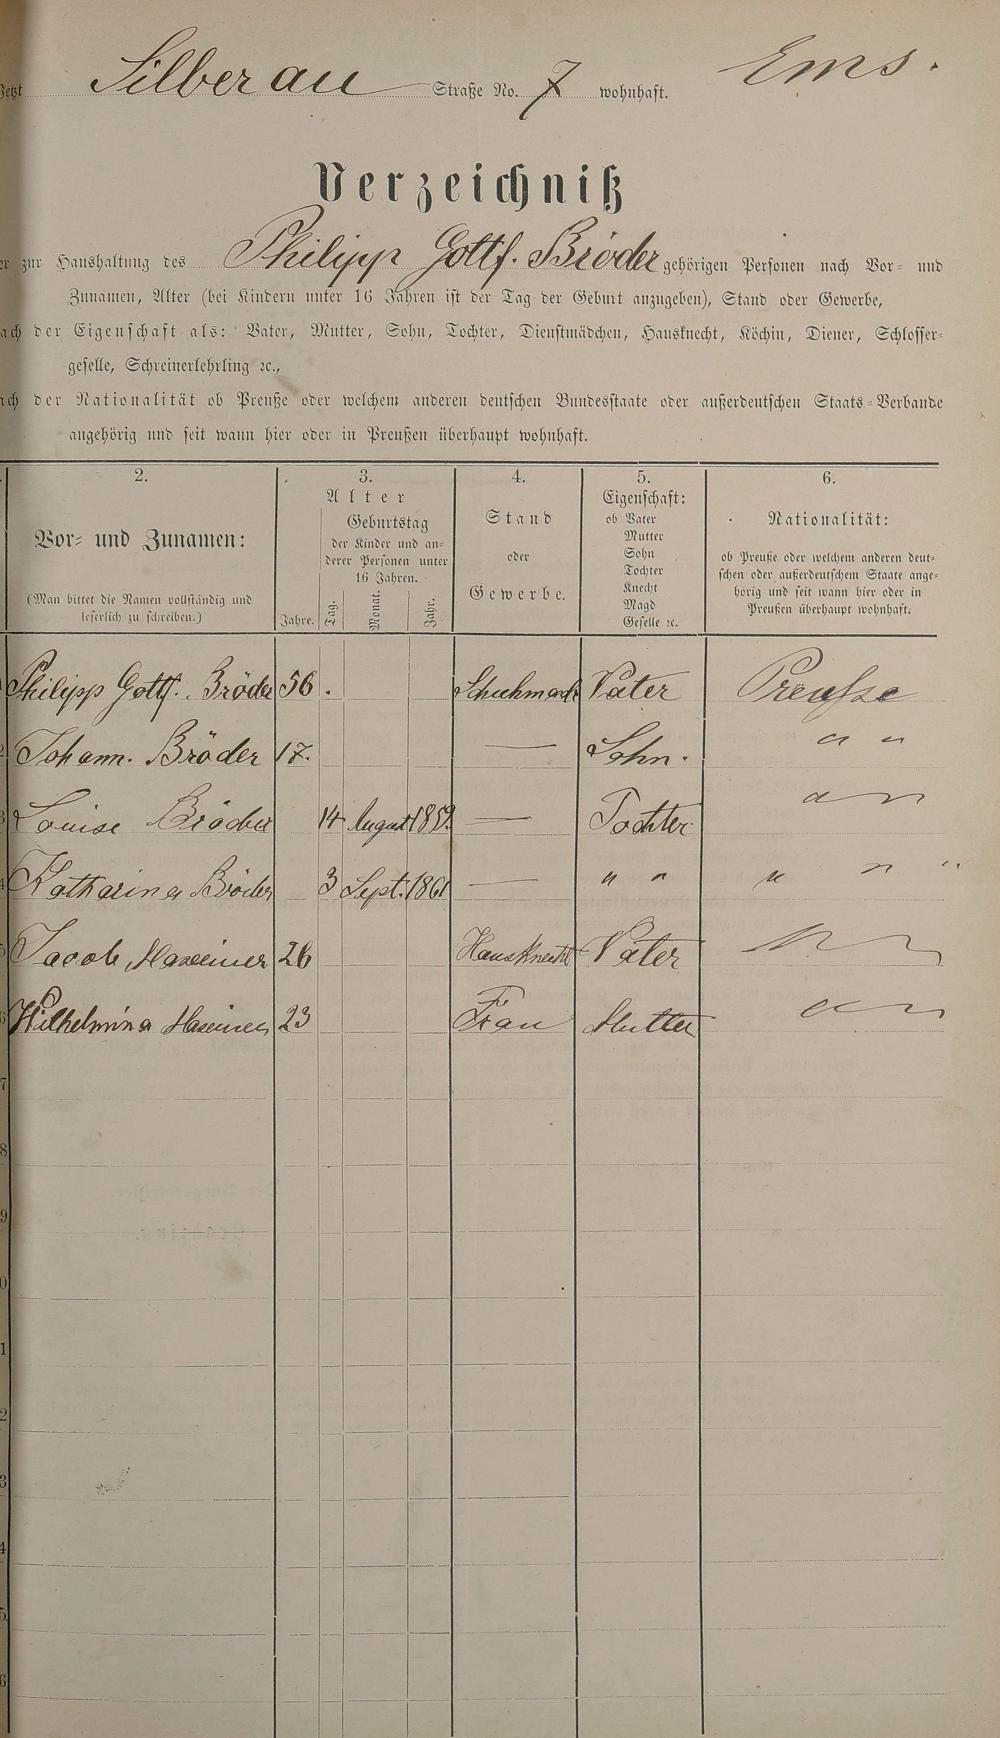 Jetzt Silberau Straße No. 7 wohnhaft. Ems.
Verzeichniß
zur Haushaltung des Philipp Gottf. Bröder gehörigen Personen nach Vor- und
Zunamen, Alter (bei Kindern unter 16 Jahren ist der Tag der Geburt anzugeben), Stand oder Gewerbe,
nach der Eigenschaft als: Vater, Mutter, Sohn, Tochter, Dienstmädchen, Hausknecht, Köchin, Diener, Schlosser-
geselle, Schreinerlehrling ꝛc.,
nach der Nationalität ob Preuße oder welchem anderen deutschen Bundesstaate oder außerdeutschen Staats-Verbande
angehörig und seit wann hier oder in Preußen überhaupt wohnhaft.
2. 3. 4. 5. 6.
Vor- und Zunamen:
(Man bittet die Namen vollständig und
leserlich zu schreiben.)
Alter
Jahre.
Geburtstag
der Kinder und an-
derer Personen unter
16 Jahren.
Tag. Monat. Jahr.
Stand
oder
Gewerbe.
Eigenschaft:
ob Vater
Mutter
Sohn
Tochter
Knecht
Magd
Geselle ꝛc.
Nationalität:
ob Preuße oder welchem anderen deut-
schen oder außerdeutschem Staate ange-
hörig und seit wann hier oder in
Preußen überhaupt wohnhaft.
Philipp Gottf. Bröder 56. Schuhmach Vater Preuße
2 Johann. Bröder 17. — Sohn. " "
3 Louise Bröder 14 August 1859. — Tochter "
4 Katharina Bröder 3 Sept. 1861 — " " " " "
5 Jacob 26 Hausknecht Vater "
6 Wilhelmina 23 Frau Mutter "
7
8
9
0
1
2
3
4
5
6